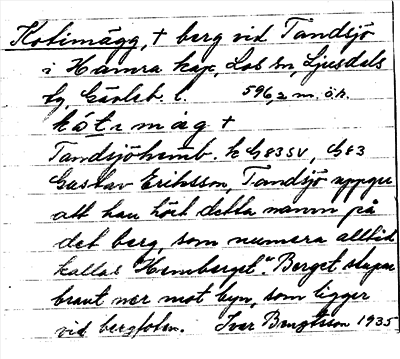 Kotimägg, + berg vid Tandsjö
i Hamra kap, Los sn, Ljusdals
tg, Gävleb. l. 596,2 m. ö.h.
kótimäg +
Tandsjöhemb. k G 83 SV, G 83
Gustav Eriksson, Tandsjö uppger
att han hört detta namn på
det berg, som numera alltid
kallas "Hemberget". Berget stupar
brant ner mot byn, som ligger
vid bergfoten. Ivar Bengtsson 1935